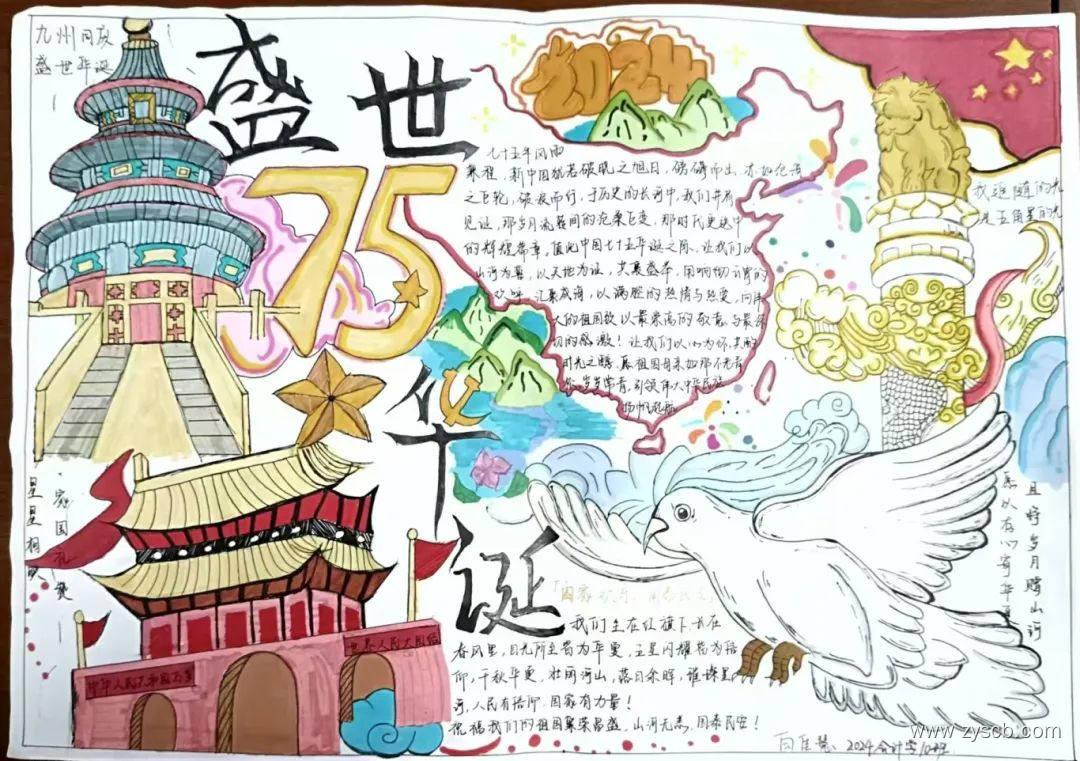 九州同庆
盛世华诞
盛世
75
华
诞
七十五年风雨
兼程,新中国犹若破晓之旭日,磅礴而出,亦如伦
之巨轮,破浪而行,于历史的长河中,我们并肩
见证,那岁月流转间的沧桑巨变,那时代更迭中
的辉煌篇章,值此中国七十五华诞之际,让我们以
山河为卷,以天地为证,共襄盛举,用响彻云霄的
汇聚成海,以满腔的热情与热爱,向伟
大的祖国致以最崇高的敬意与最深
切的感激!让我们以心为
时光之
岁岁常青,引领伟大中华民族
扬帆起航
我追随的光
是五角星的光
星星相
家国
且好岁月赠山河
我们生在红旗下长在
春风里,目光所至皆为华夏,五星闪耀皆为信
仰,千秋华夏,壮丽河山,落日余晖,璀璨星
河,人民有信仰,国家有力量!
祝福我们的祖国繁荣昌盛,山河无恙,国泰民安!
中华人民共和国万岁
世界人民大团结
2024会计
www.zyscb.com